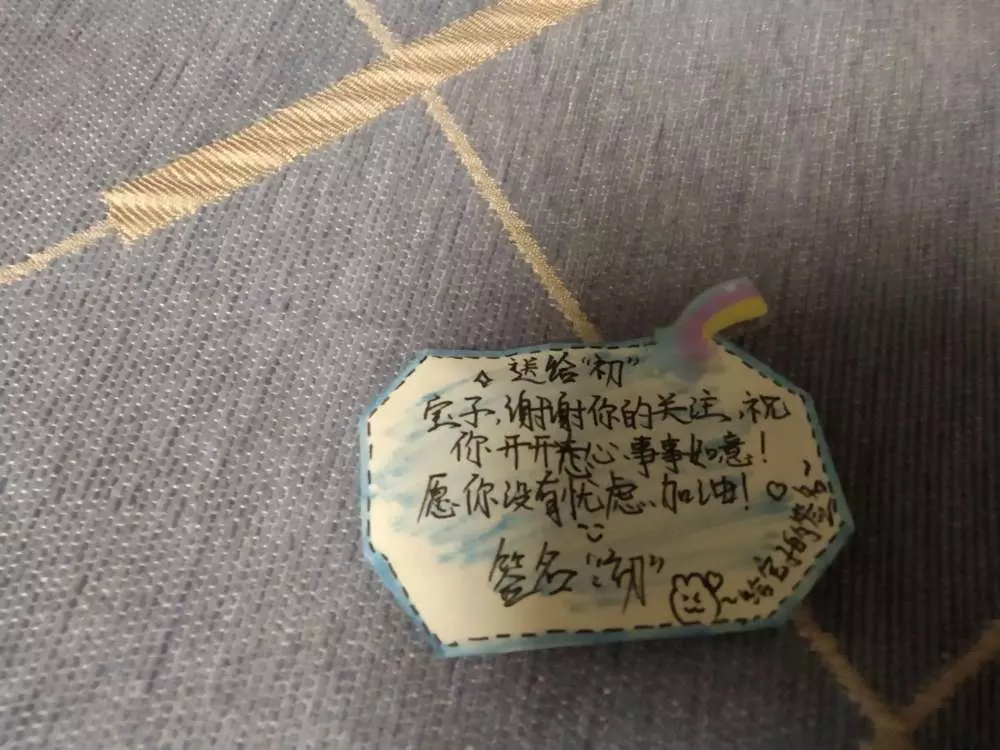 送给“初”
宝子、谢谢你的关注、祝
你开开心心、事事如意!
愿你没有忧虑、加油!
签名“初”
~给宝子的签名~